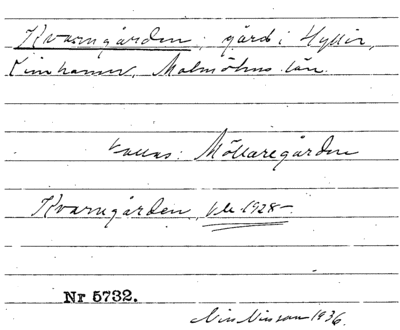 Kvarngården, gård i Hyllie,
Malmöhus län.
kallas: Möllaregården
Kvarngården, 1928
Nr 5732.
Nils Nilsson 1936.